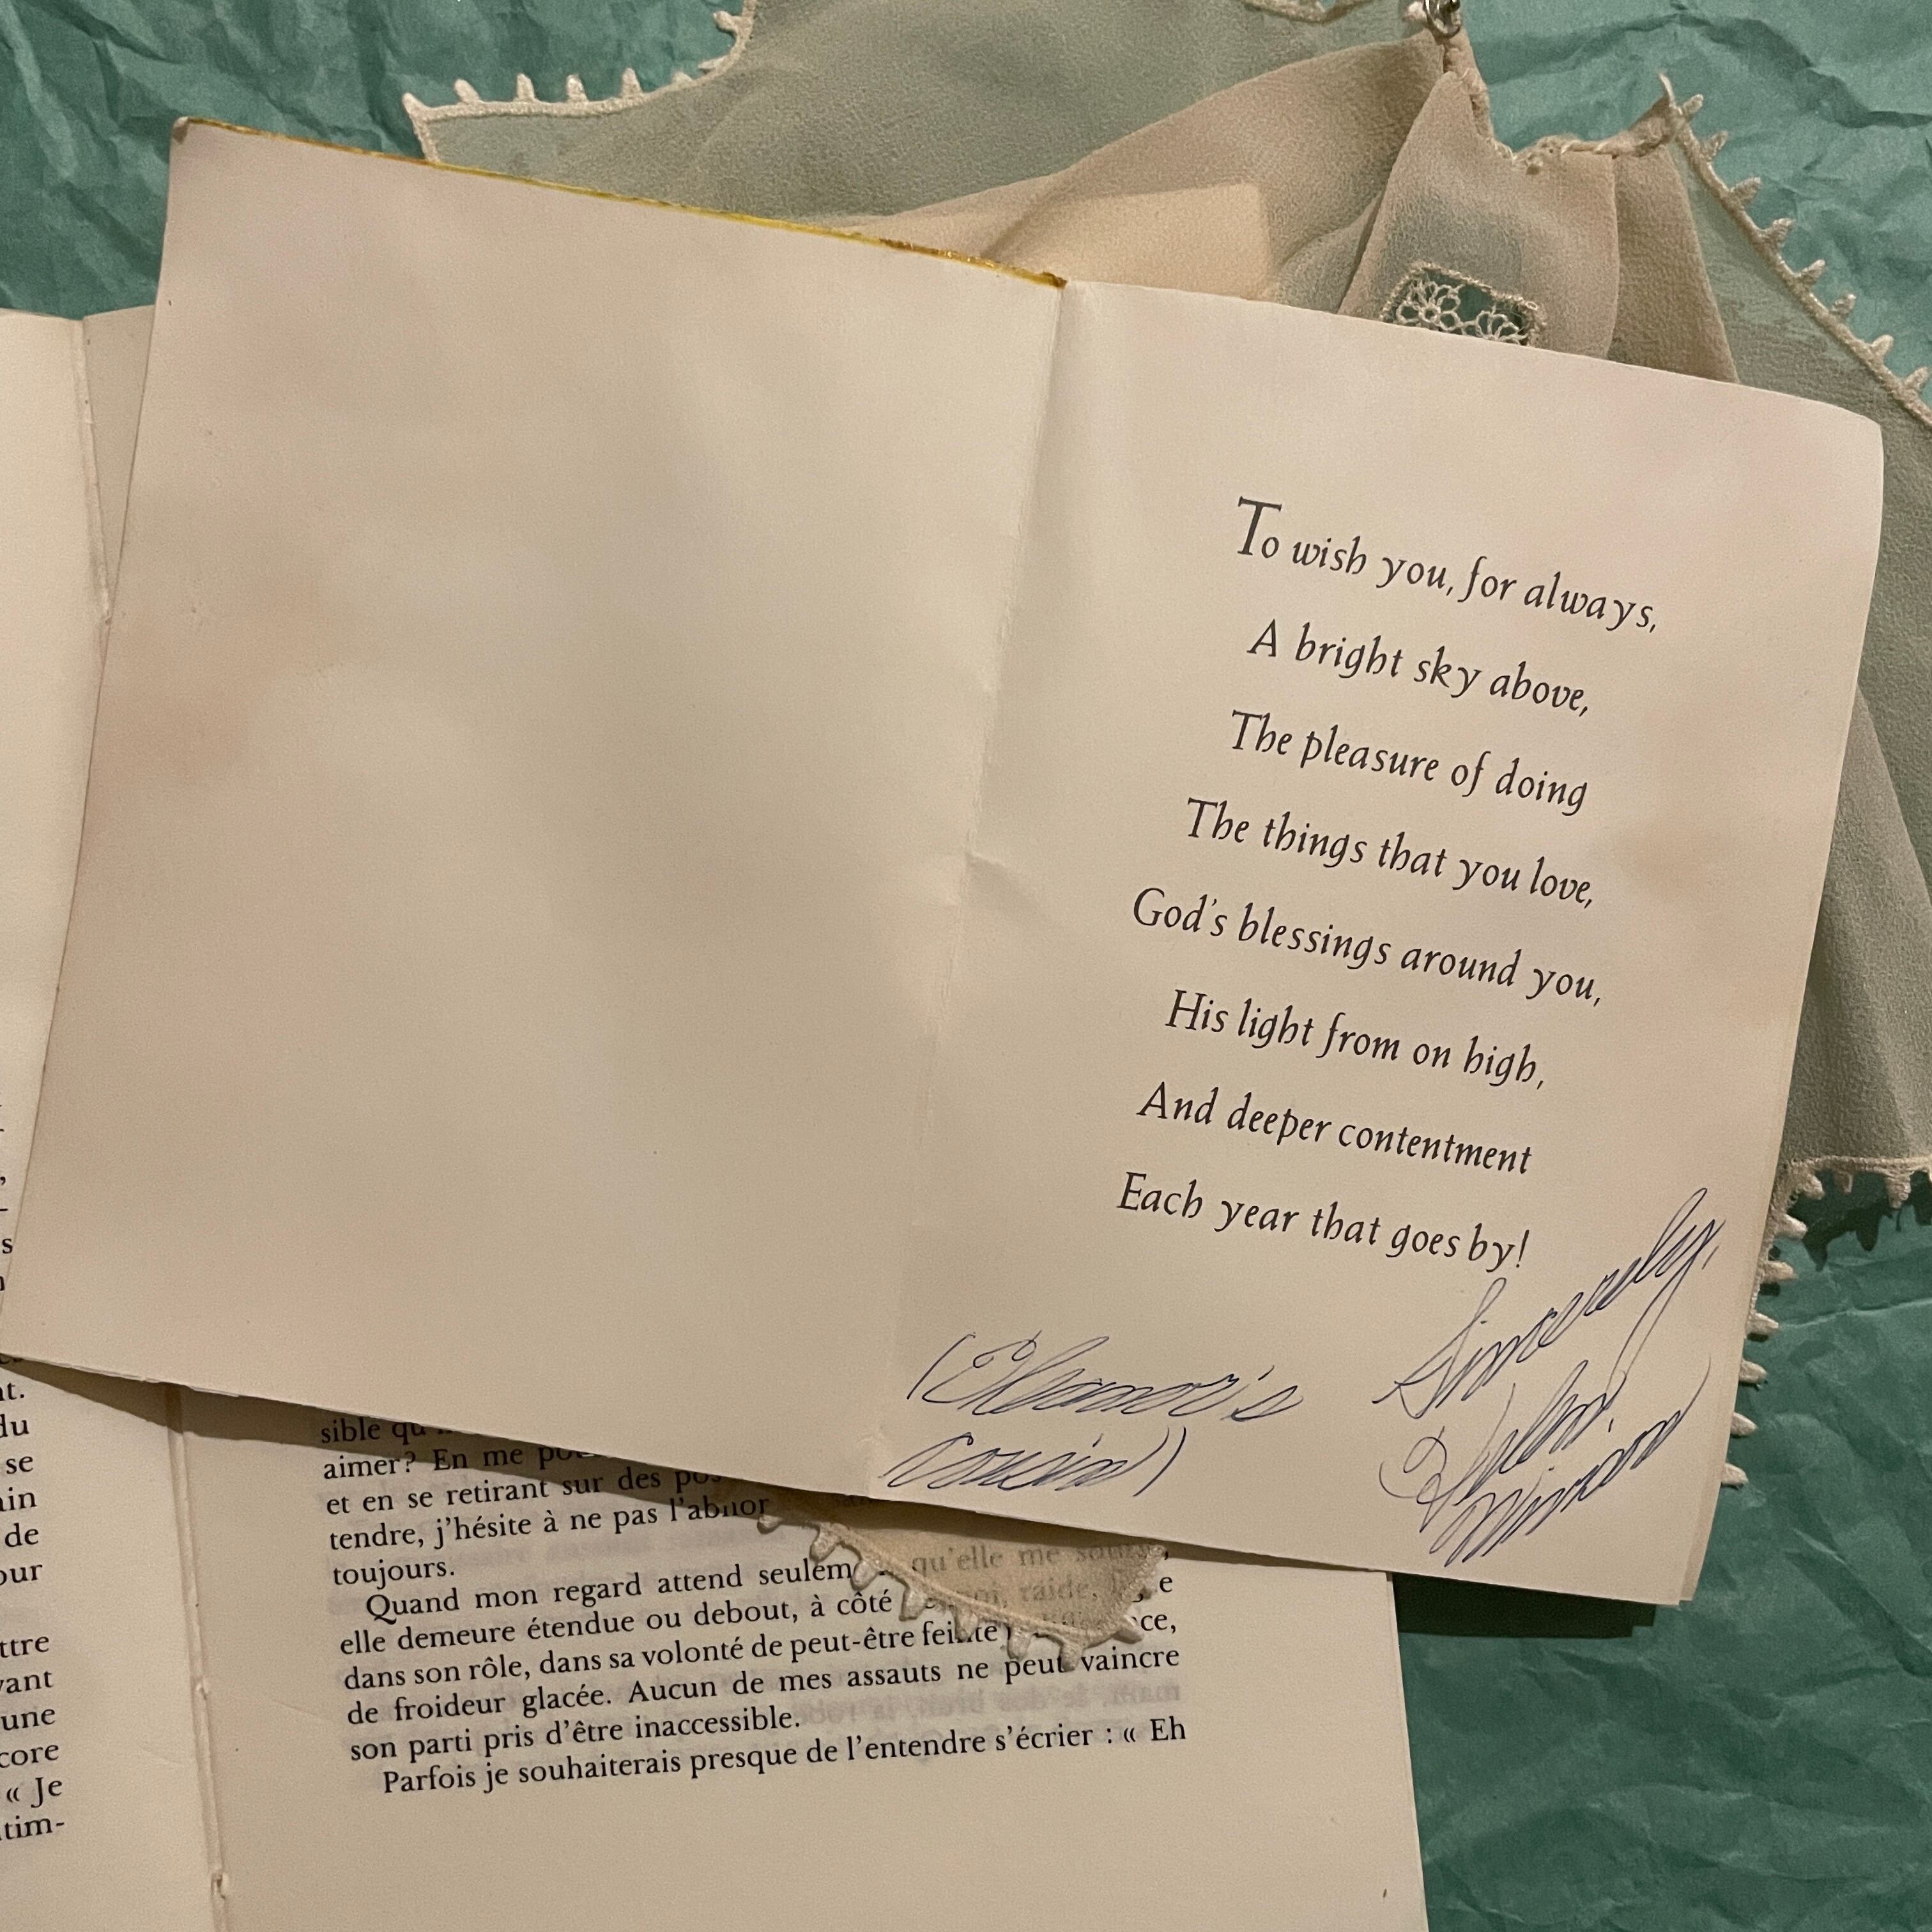 To wish you, for always,
A bright sky above,
The pleasure of doing
The things that you love,
God's blessings around you,
His light from on high,
And deeper contentment
Each year that goes by!
Sincerely,
(Eleanor's
cousin)
s
t.
du
se
ain
de
our
ttre
vant
une
core
« Je
tim-
sible
aimer? En me
et en se retirant sur des
tendre, j'hésite à ne pas
toujours.
Quand mon regard attend qu'elle me
elle demeure étendue ou debout, à côté raide,
dans son rôle, dans sa volonté de peut-être
de froideur glacée. Aucun de mes assauts ne peut vaincre
son parti pris d'être inaccessible.
Parfois je souhaiterais presque de l'entendre s'écrier : « Eh